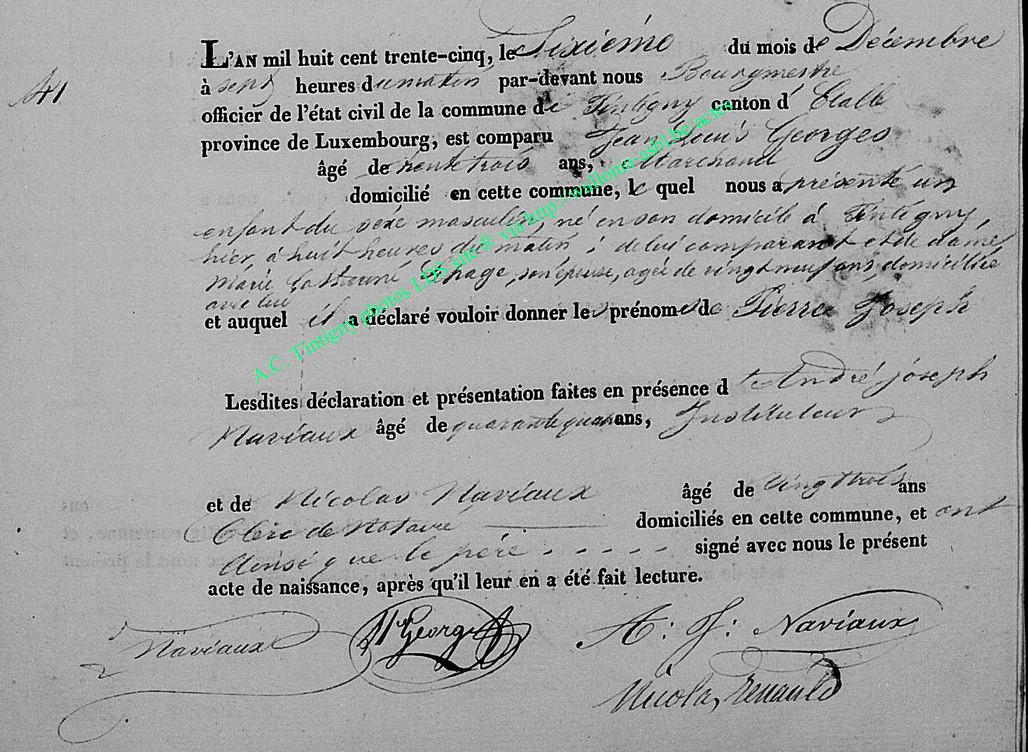 41
L'AN mil huit cent trente-cinq, le Sixiéme du mois de Décembre
à sept heures du matin par-devant nous Bourgmestre
officier de l'état civil de la commune de Tintigny canton d' Etalle
province de Luxembourg, est comparu Jean Louis Georges
âgé de trente trois ans, Marchand
domicilié en cette commune, le quel nous a présenté un
enfant du sexe masculin, né en son domicile à Tintigny,
hier, à huit heures du matin ; de lui comparant et de dame
Marie Lepage, son épouse, agée de vingt neuf ans, domiciliée
avec lui
et auquel il a déclaré vouloir donner les prénoms de Pierre Joseph
A.C. Tintigny photos LDS site ® via http://wallonia-asbl.be/actes
Lesdites déclaration et présentation faites en présence d'André joseph
Naviaux âgé de quarante quatre ans, Instituteur
et de Nicolas Naviaux âgé de vingt trois ans
Clerc de Notaire domiciliés en cette commune, et ont
Ainsi que le père - - - - - signé avec nous le présent
acte de naissance, après qu'il leur en a été fait lecture.
Naviaux Georges A: J: Naviaux
Nicolas Renauld